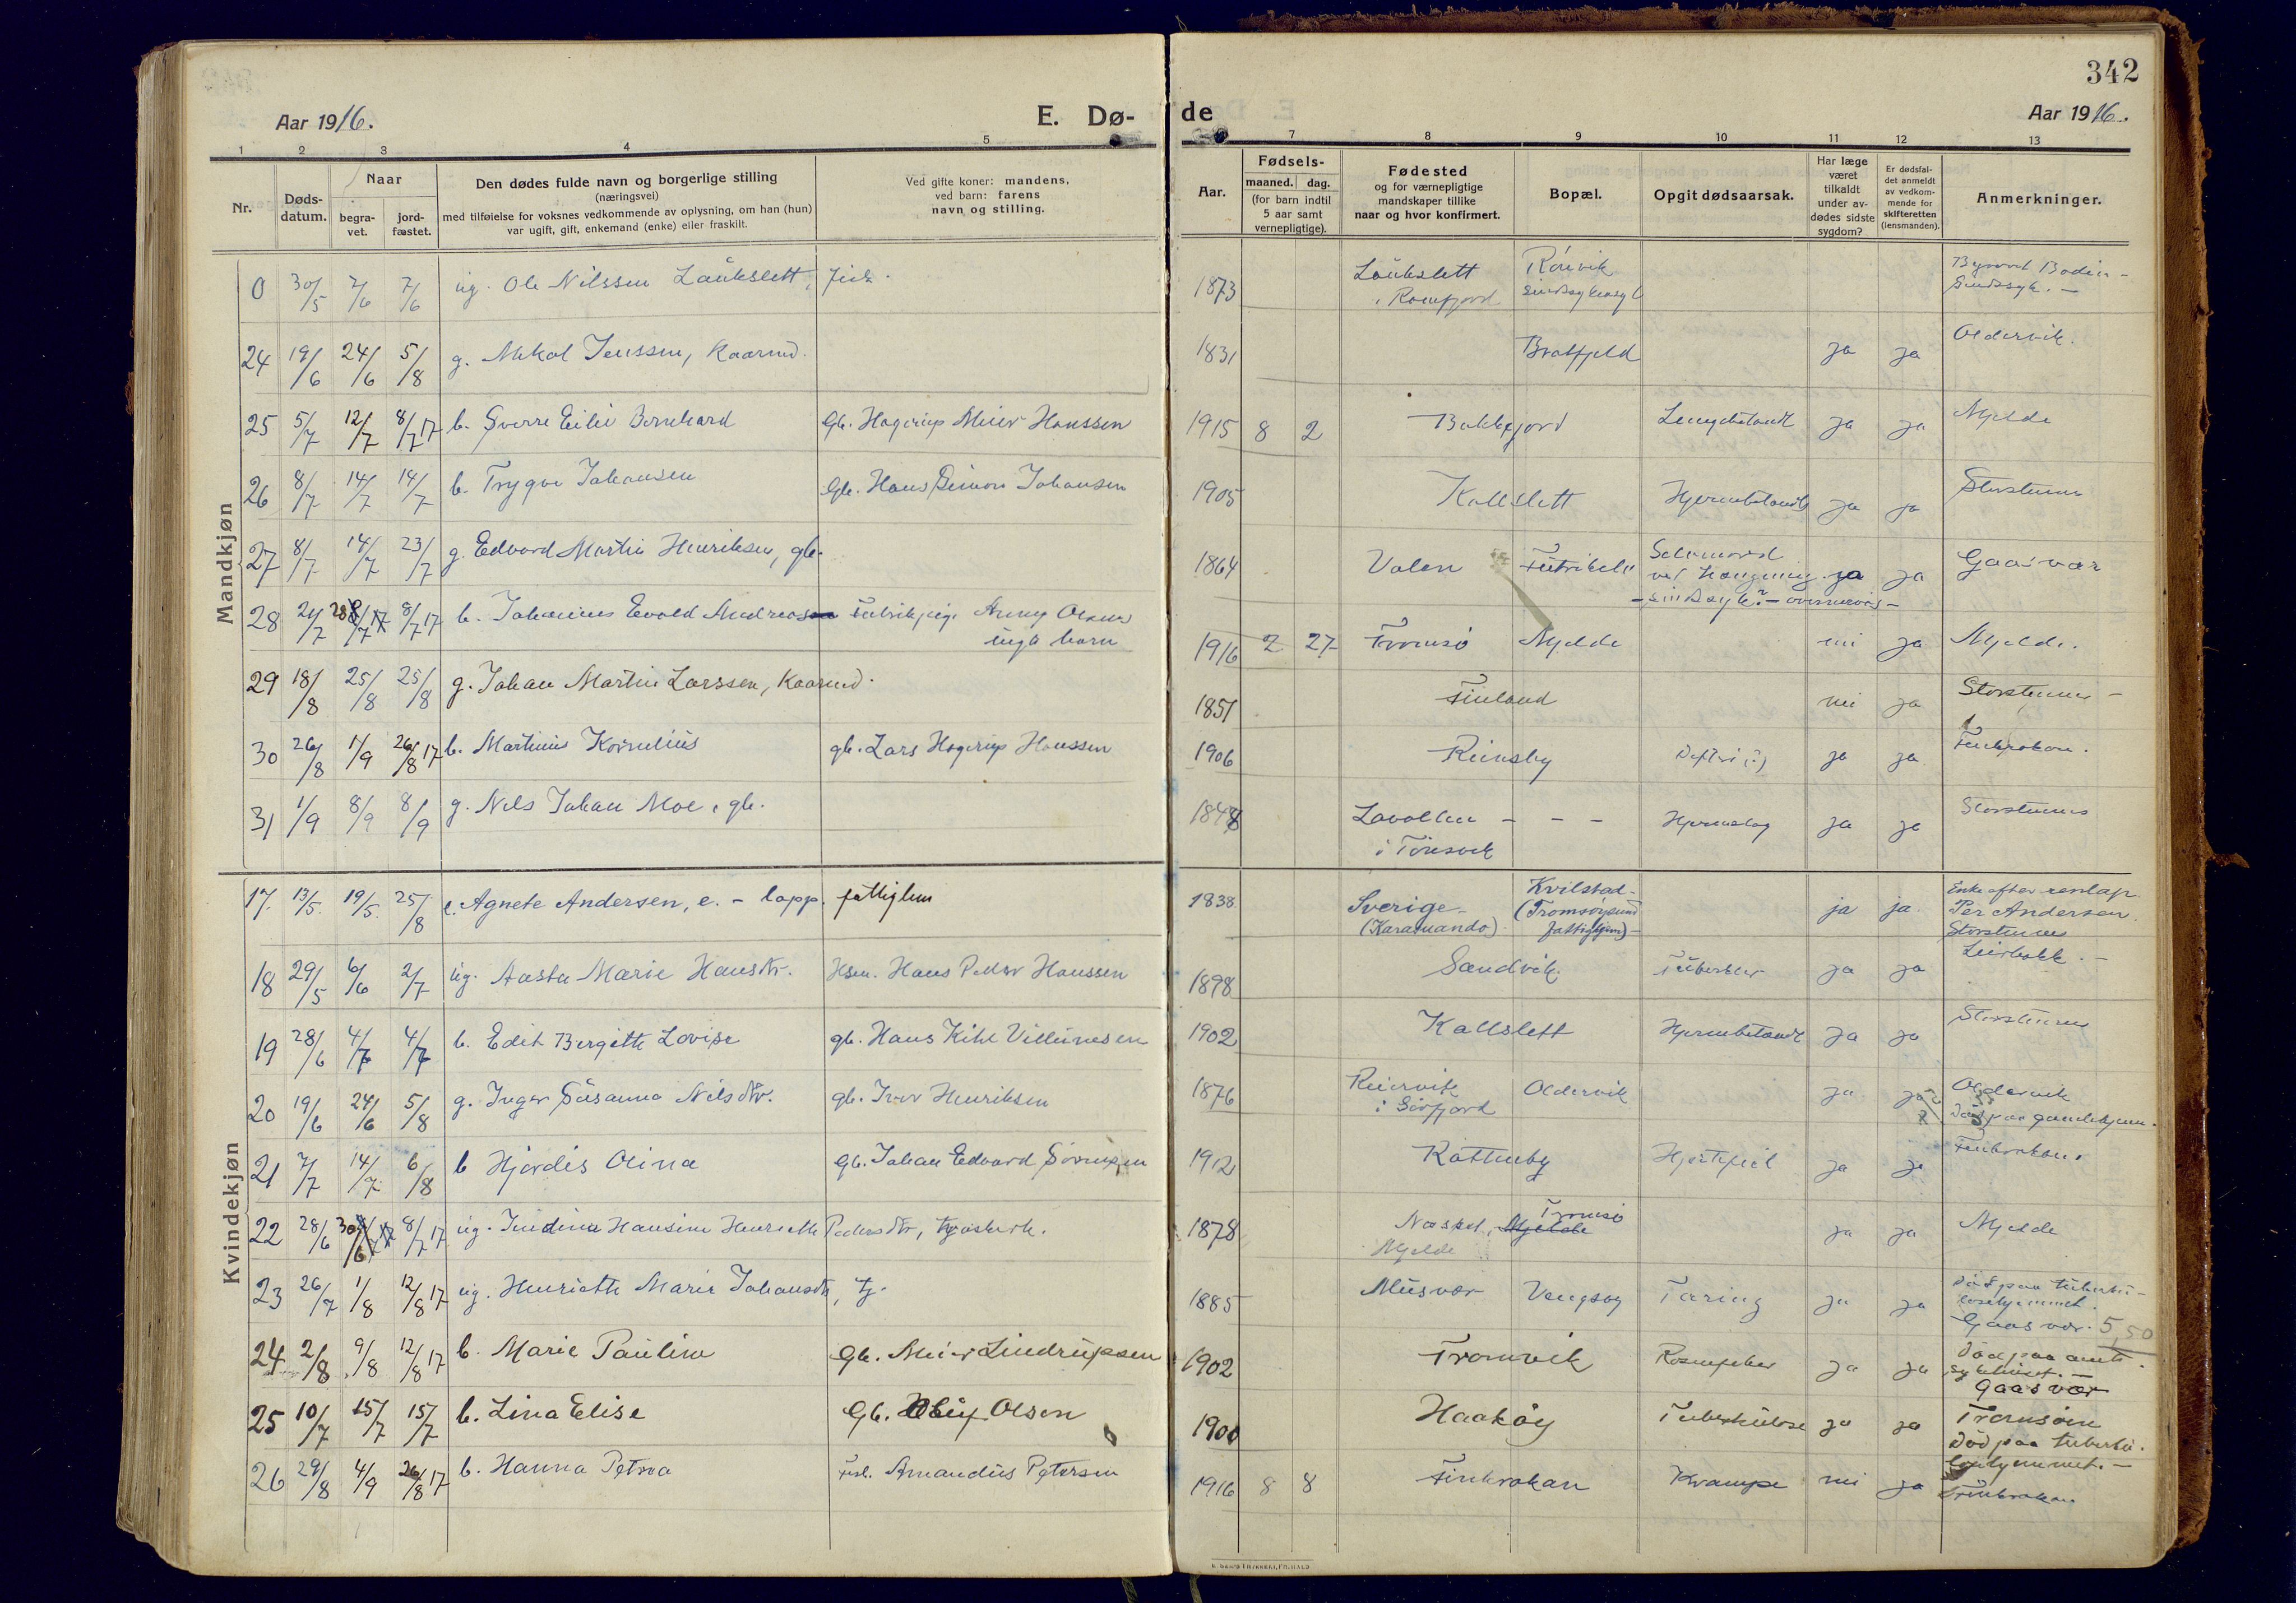 342
Aar 1916.
E. Dø-
de
Aar 1916.
1 2 3 4 5 7 8 9 10 11 12 13
Nr.
Døds-
datum.
Naar
begra-
vet.
jord-
fæstet.
Den dødes fulde navn og borgerlige stilling
(næringsvei)
med tilføielse for voksnes vedkommende av oplysning, om han (hun)
var ugift, gift, enkemand (enke) eller fraskilt.
Ved gifte koner: mandens,
ved barn: farens
navn og stilling.
Aar.
Fødsels-
maaned. dag.
(for barn indtil
5 aar samt
vernepligtige).
Fødested
og for værnepligtige
mandskaper tillike
naar og hvor konfirmert.
Bopæl.
Opgit dødsaarsak.
Har læge
været
tilkaldt
under av-
dødes sidste
sygdom?
Er dødsfal-
det anmeldt
av vedkom-
mende for
skifteretten
(lensmanden).
Anmerkninger.
Mandkjøn
0 30/5 7/6 7/6 ug. Ole Nilssen Laukslett, 1873 Laukslett
i Ramfjord
Rönvik
Sindssyk. -
24 19/6 24/6 5/8 g. Mikal Jenssen, Kaarmd. 1831 Bratfjeld ja ja Oldervik.
25 5/7 12/7 8/7 17 b. Sverre Eiliv Bernhard Gb. Hagerup Meier Hanssen 1915 8 2 Bakkejord Lungebetændt ja ja Mjelde
26 8/7 14/7 14/7 b. Trygve Johansen Gb. Hans Simon Johansen 1905 Kallslett Hjernebetændt ja ja Storstennes
27 8/7 14/7 23/7 g. Edvard Martin Henriksen, gb. 1864 Valen Futrikelv Selvmord
ved hængning. ja ja Gaasvær
- sindssyk? -
28 21/7 8/7 17 b. Johannes Evald Andreassen Fabrikpige Anny Olsens
uægte barn 1916 2 27 Tromsø Mjelde nei ja Mjelde.
29 18/8 25/8 25/8 g. Johan Martin Larssen, Kaarmd. 1851 Finland nei ja Storstennes -
30 26/8 1/9 26/8 17 b. Martinus Kornelius gb. Lars Hagerup Hanssen 1906 Reinsby Difteri (?) ja ja Finkroken.
31 1/9 8/9 8/9 g. Nils Johan Moe, gb. 1848 Lavollen - - -
i Tönsvik
Hjerneslag ja ja Storstennes
Kvindekjøn
17. 13/5. 19/5. 25/8 e. Agnete Andersen, e. - lapp. fattiglem 1838. Sverige -
(Karasuando)
Kvilstad -
(Tromsøysund
fattighjem) -
ja ja. Enke efter renlap
Per Andersen.
Storstennes
18 29/5 6/6 2/7 ug. Aasta Marie Hansdtr. Hsm. Hans Peder Hanssen 1898 Sandvik. Tuberkler ja ja Leirbakk. -
19 28/6 4/7 4/7 b. Edit Bergitte Lovise gb. Hans Kihl Villumsen 1902 Kallslett Hjernebetændt ja ja Storstennes
20 19/6 24/6 5/8 g. Inger Susanna Nilsdtr. gb. Iver Henriksen 1876 Reiervik
i Sørfjord
Oldervik ja ja Oldervik
Död paa gamlehjem.
21 7/7 14/7 6/8 b Hjördis Olina gb. Johan Edvard Sörensen 1912 Kattenby Hjertefeil ja ja Finkroken.
22 28/6 30/6 8/7 17 ug. Jendine Hansine Henriette Pedersdtr, 1878 Næsset, Mjelde
Mjelde
Tromsø
ja ja Mjelde
23 26/7 1/8 12/8 17 ug. Henriette Marie Johansdtr, tj. 1885 Musvær Vengsøy Tæring ja ja Död paa tuberku-
losehjemmet.
Gaasvær. 5,50
24 2/8 9/8 12/8 17 b. Marie Pauline Gb. Meier Lindrupsen 1902 Tromvik Rosenfeber ja ja Död paa amts.
sykehuset. -
Gaasvær
25 10/7 15/7 15/7 b. Lina Elise Gb. Oluf Olsen 1900 Haakøy Tuberkulose ja ja Tromsøen
Död paa tuberku.
losehjemmet. -
26 29/8 4/9 26/8 17 b. Hanna Petrea Amandus Petersen 1916 8 8 Finkroken Krampe nei ja Finkroken